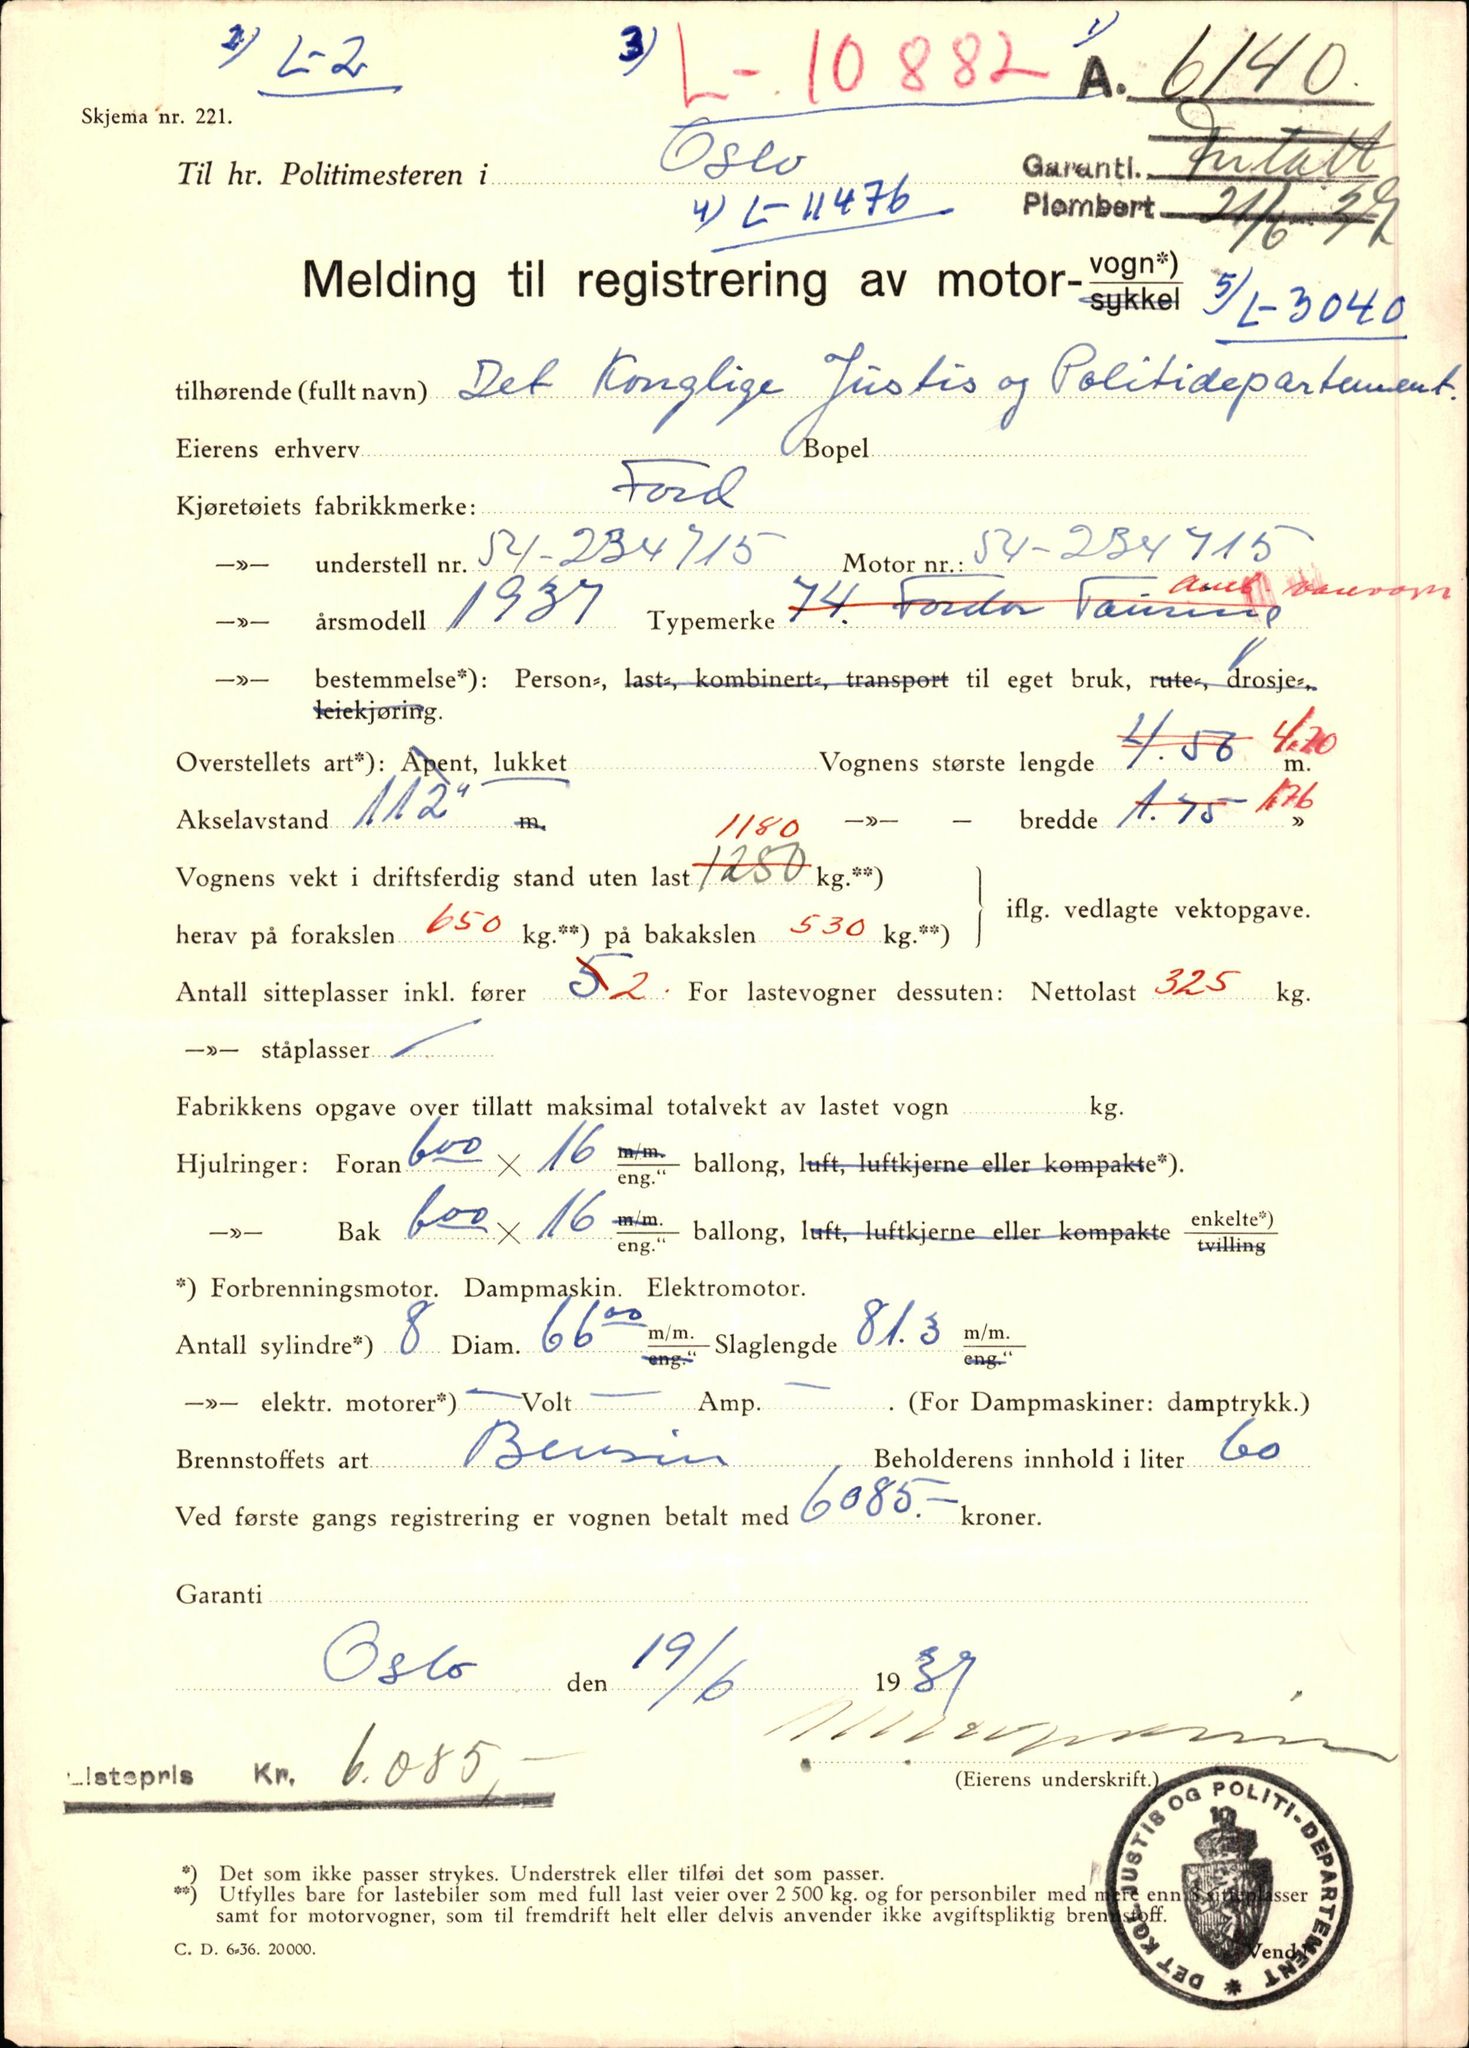 2) L-2
3) L-10882
1) A. 6140.
Skjema nr. 221.
Til hr. Politimesteren i Oslo
Garanti. Inntatt
4) L-11476
Plombert 21/6-39
Melding til registrering av motor-vogn*)
sykkel
5/ L-3040
tilhørende (fullt navn) Det Konglige Justis og Politidepartement.
Eierens erhverv Bopel
Kjøretøiets fabrikkmerke: Ford
—»— understell nr. 54-234715 Motor nr.: 54-234715
—»— årsmodell 1937 Typemerke 74. Fordor Touring varevogn
—»— bestemmelse*): Person-, last-, kombinert-, transport til eget bruk, rute-, drosje-,
leiekjøring.
Overstellets art*): Åpent, lukket Vognens største lengde 4.56 4.20 m.
Akselavstand 112" m. —»— — bredde 1.75 1.76 »
1180
Vognens vekt i driftsferdig stand uten last 1250 kg.**)
iflg. vedlagte vektopgave.
herav på forakslen 650 kg.**) på bakakslen 530 kg.**)
Antall sitteplasser inkl. fører 5 2. For lastevogner dessuten: Nettolast 325 kg.
—»— ståplasser
Fabrikkens opgave over tillatt maksimal totalvekt av lastet vogn kg.
Hjulringer: Foran 600 × 16 m/m. eng." ballong, luft, luftkjerne eller kompakte*).
—»— Bak 600 × 16 m/m. eng." ballong, luft, luftkjerne eller kompakte enkelte*) tvilling
*) Forbrenningsmotor. Dampmaskin. Elektromotor.
Antall sylindre*) 8 Diam. 66.00 m/m. eng." Slaglengde 81.3 m/m. eng."
—»— elektr. motorer*) — Volt — Amp. — . (For Dampmaskiner: damptrykk.)
Brennstoffets art Bensin Beholderens innhold i liter 60
Ved første gangs registrering er vognen betalt med 6085.- kroner.
Garanti
Oslo den 19/6 1939
Listepris Kr. 6.085,-
(Eierens underskrift.)
DET KGL. JUSTIS OG POLITI-DEPARTEMENT
*) Det som ikke passer strykes. Understrek eller tilføi det som passer.
**) Utfylles bare for lastebiler som med full last veier over 2 500 kg. og for personbiler med mere enn sitteplasser
samt for motorvogner, som til fremdrift helt eller delvis anvender ikke avgiftspliktig brennstoff.
C. D. 6-36. 20000.
Vend!